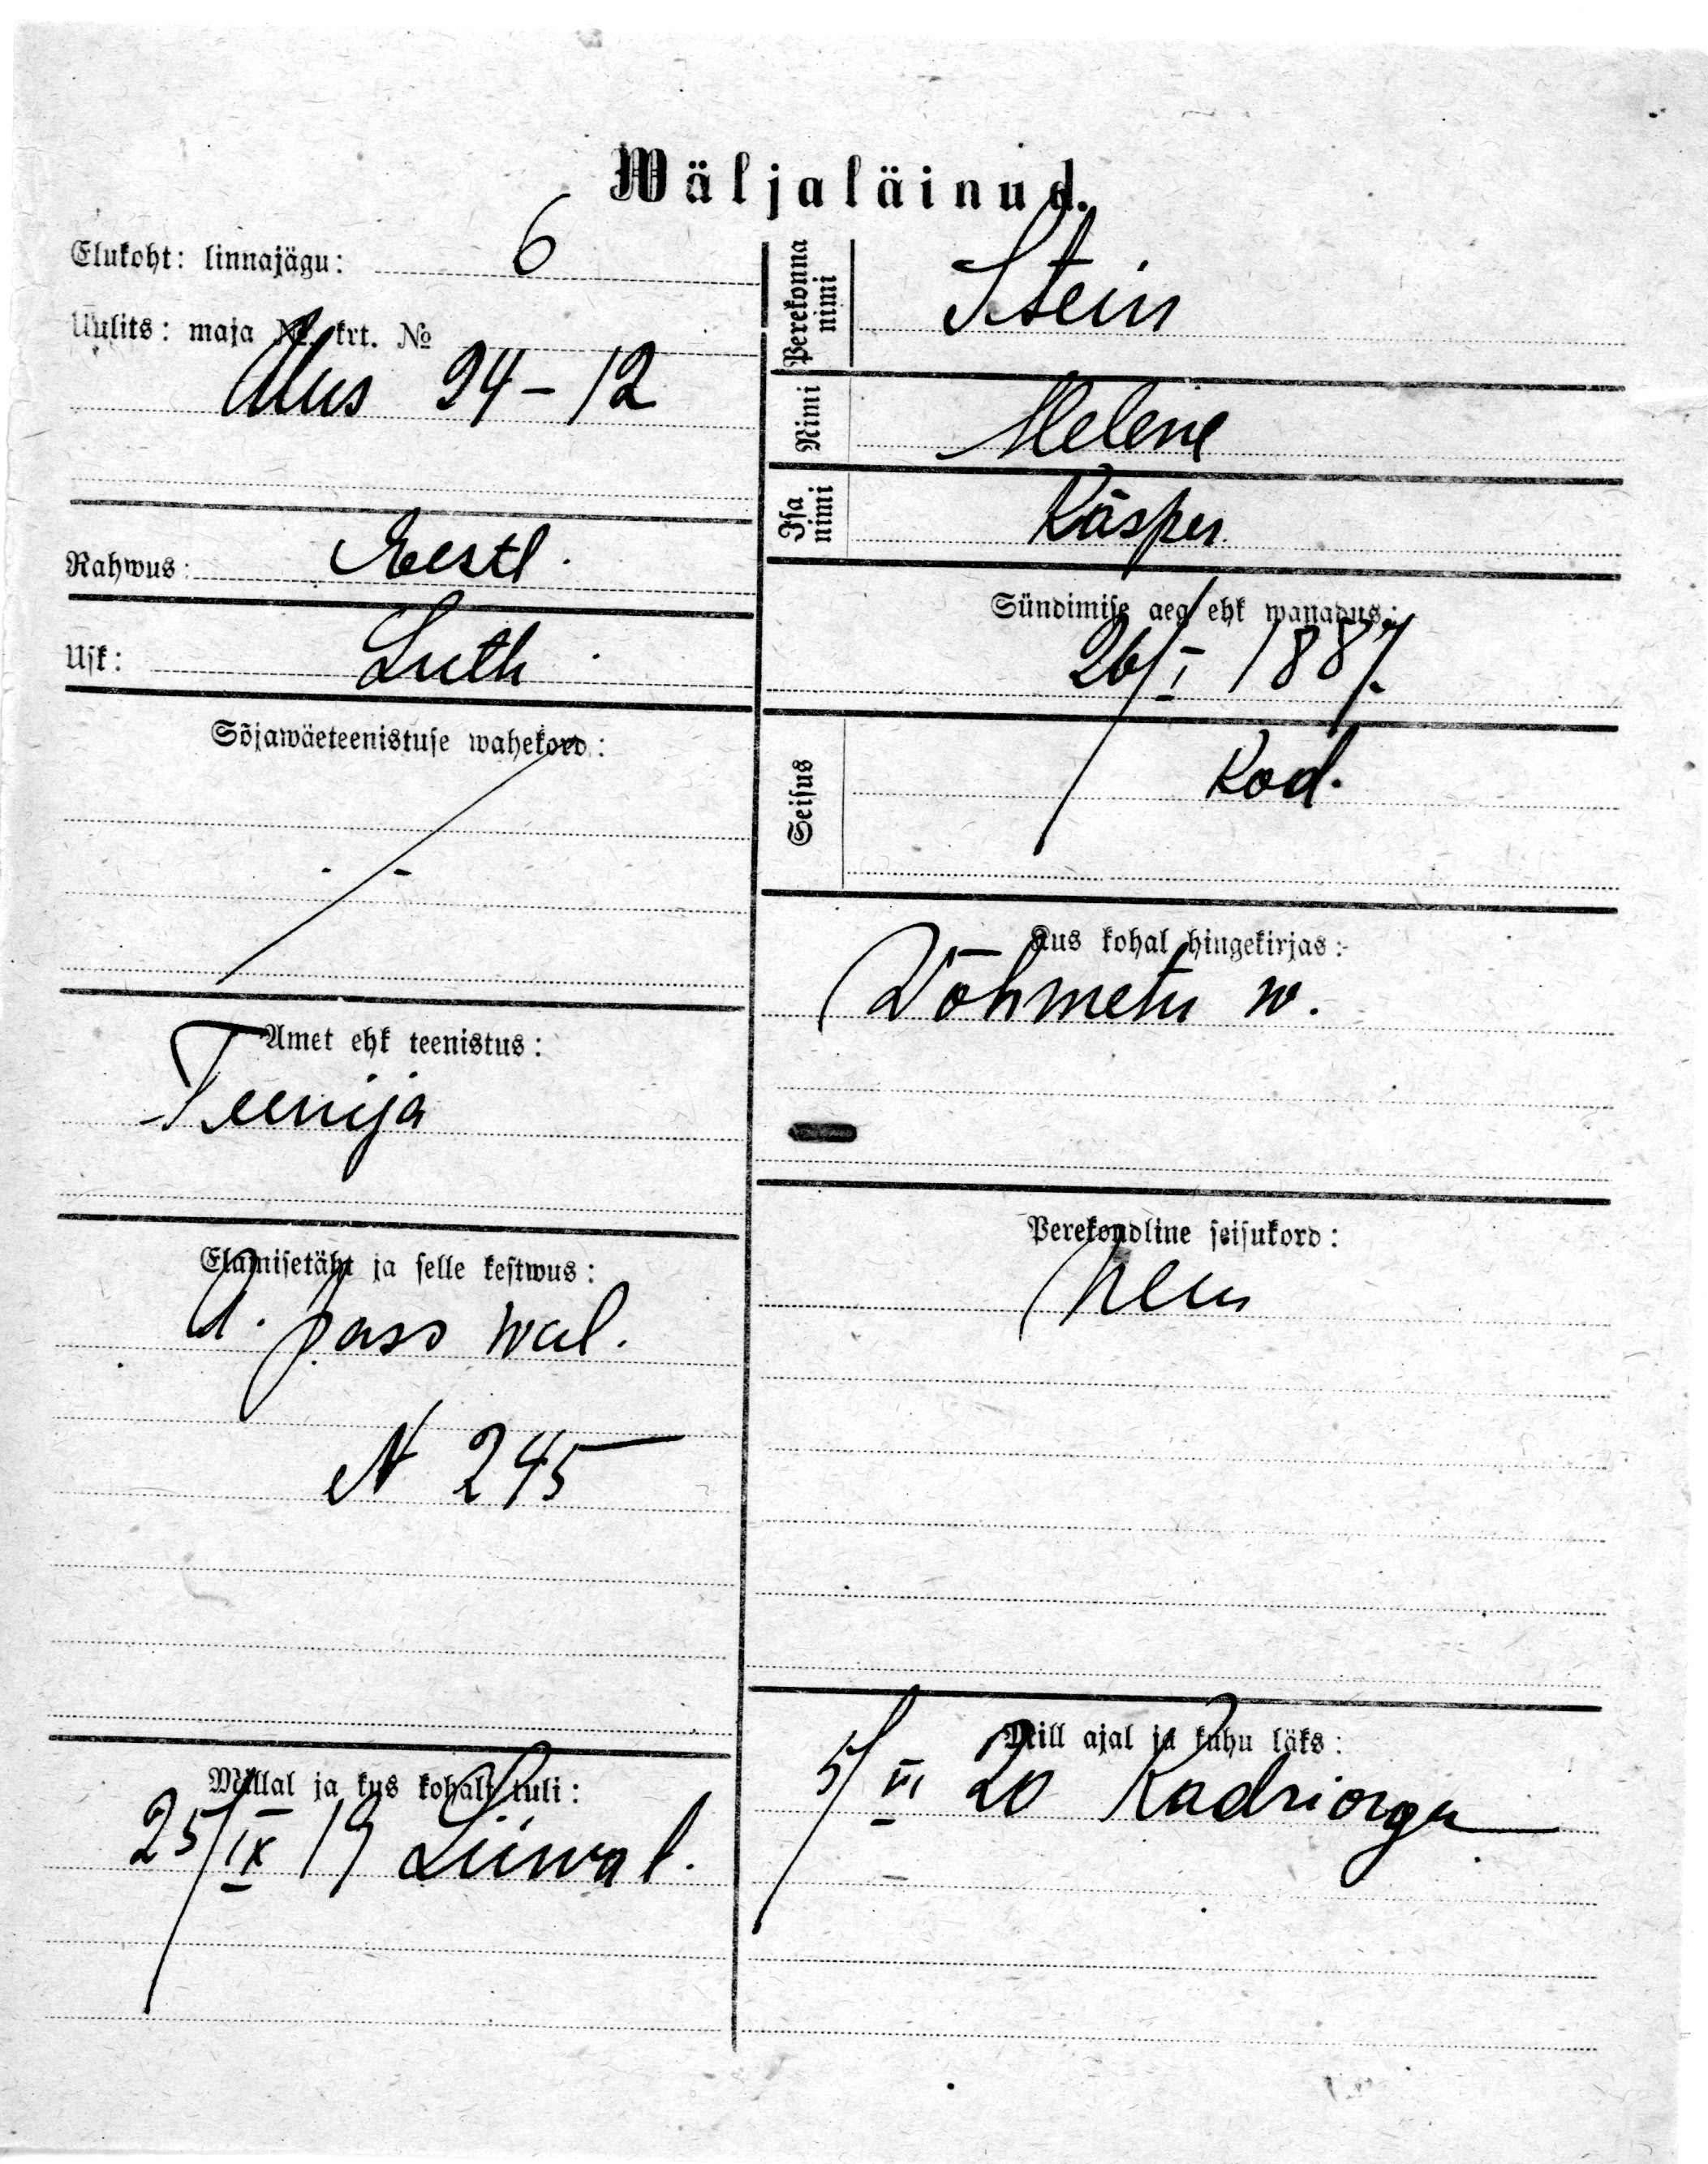 Wäljaläinud.
Elukoht: linnajägu: 6
Uulits: maja №, krt. №
Uus 24-12
Rahwus: Eestl.
Usk: Luth.
Sõjawäeteenistuse wahekord:
Amet ehk teenistus:
Teenija
Elamisetäht ja selle kestwus:
pass wal.
N 245
Millal ja kus kohalt tuli:
25/IX 19 Liiwal.
Perekonna nimi Stein
Nimi Helene
Isa nimi Käsper
Sündimise aeg ehk wanadus:
26/I 1887.
Seisus Kod.
Kus kohal hingekirjas:
Wõhmetu w.
Perekondline seisukord:
Mill ajal ja kuhu läks:
5/VI 20 Kadriorgu